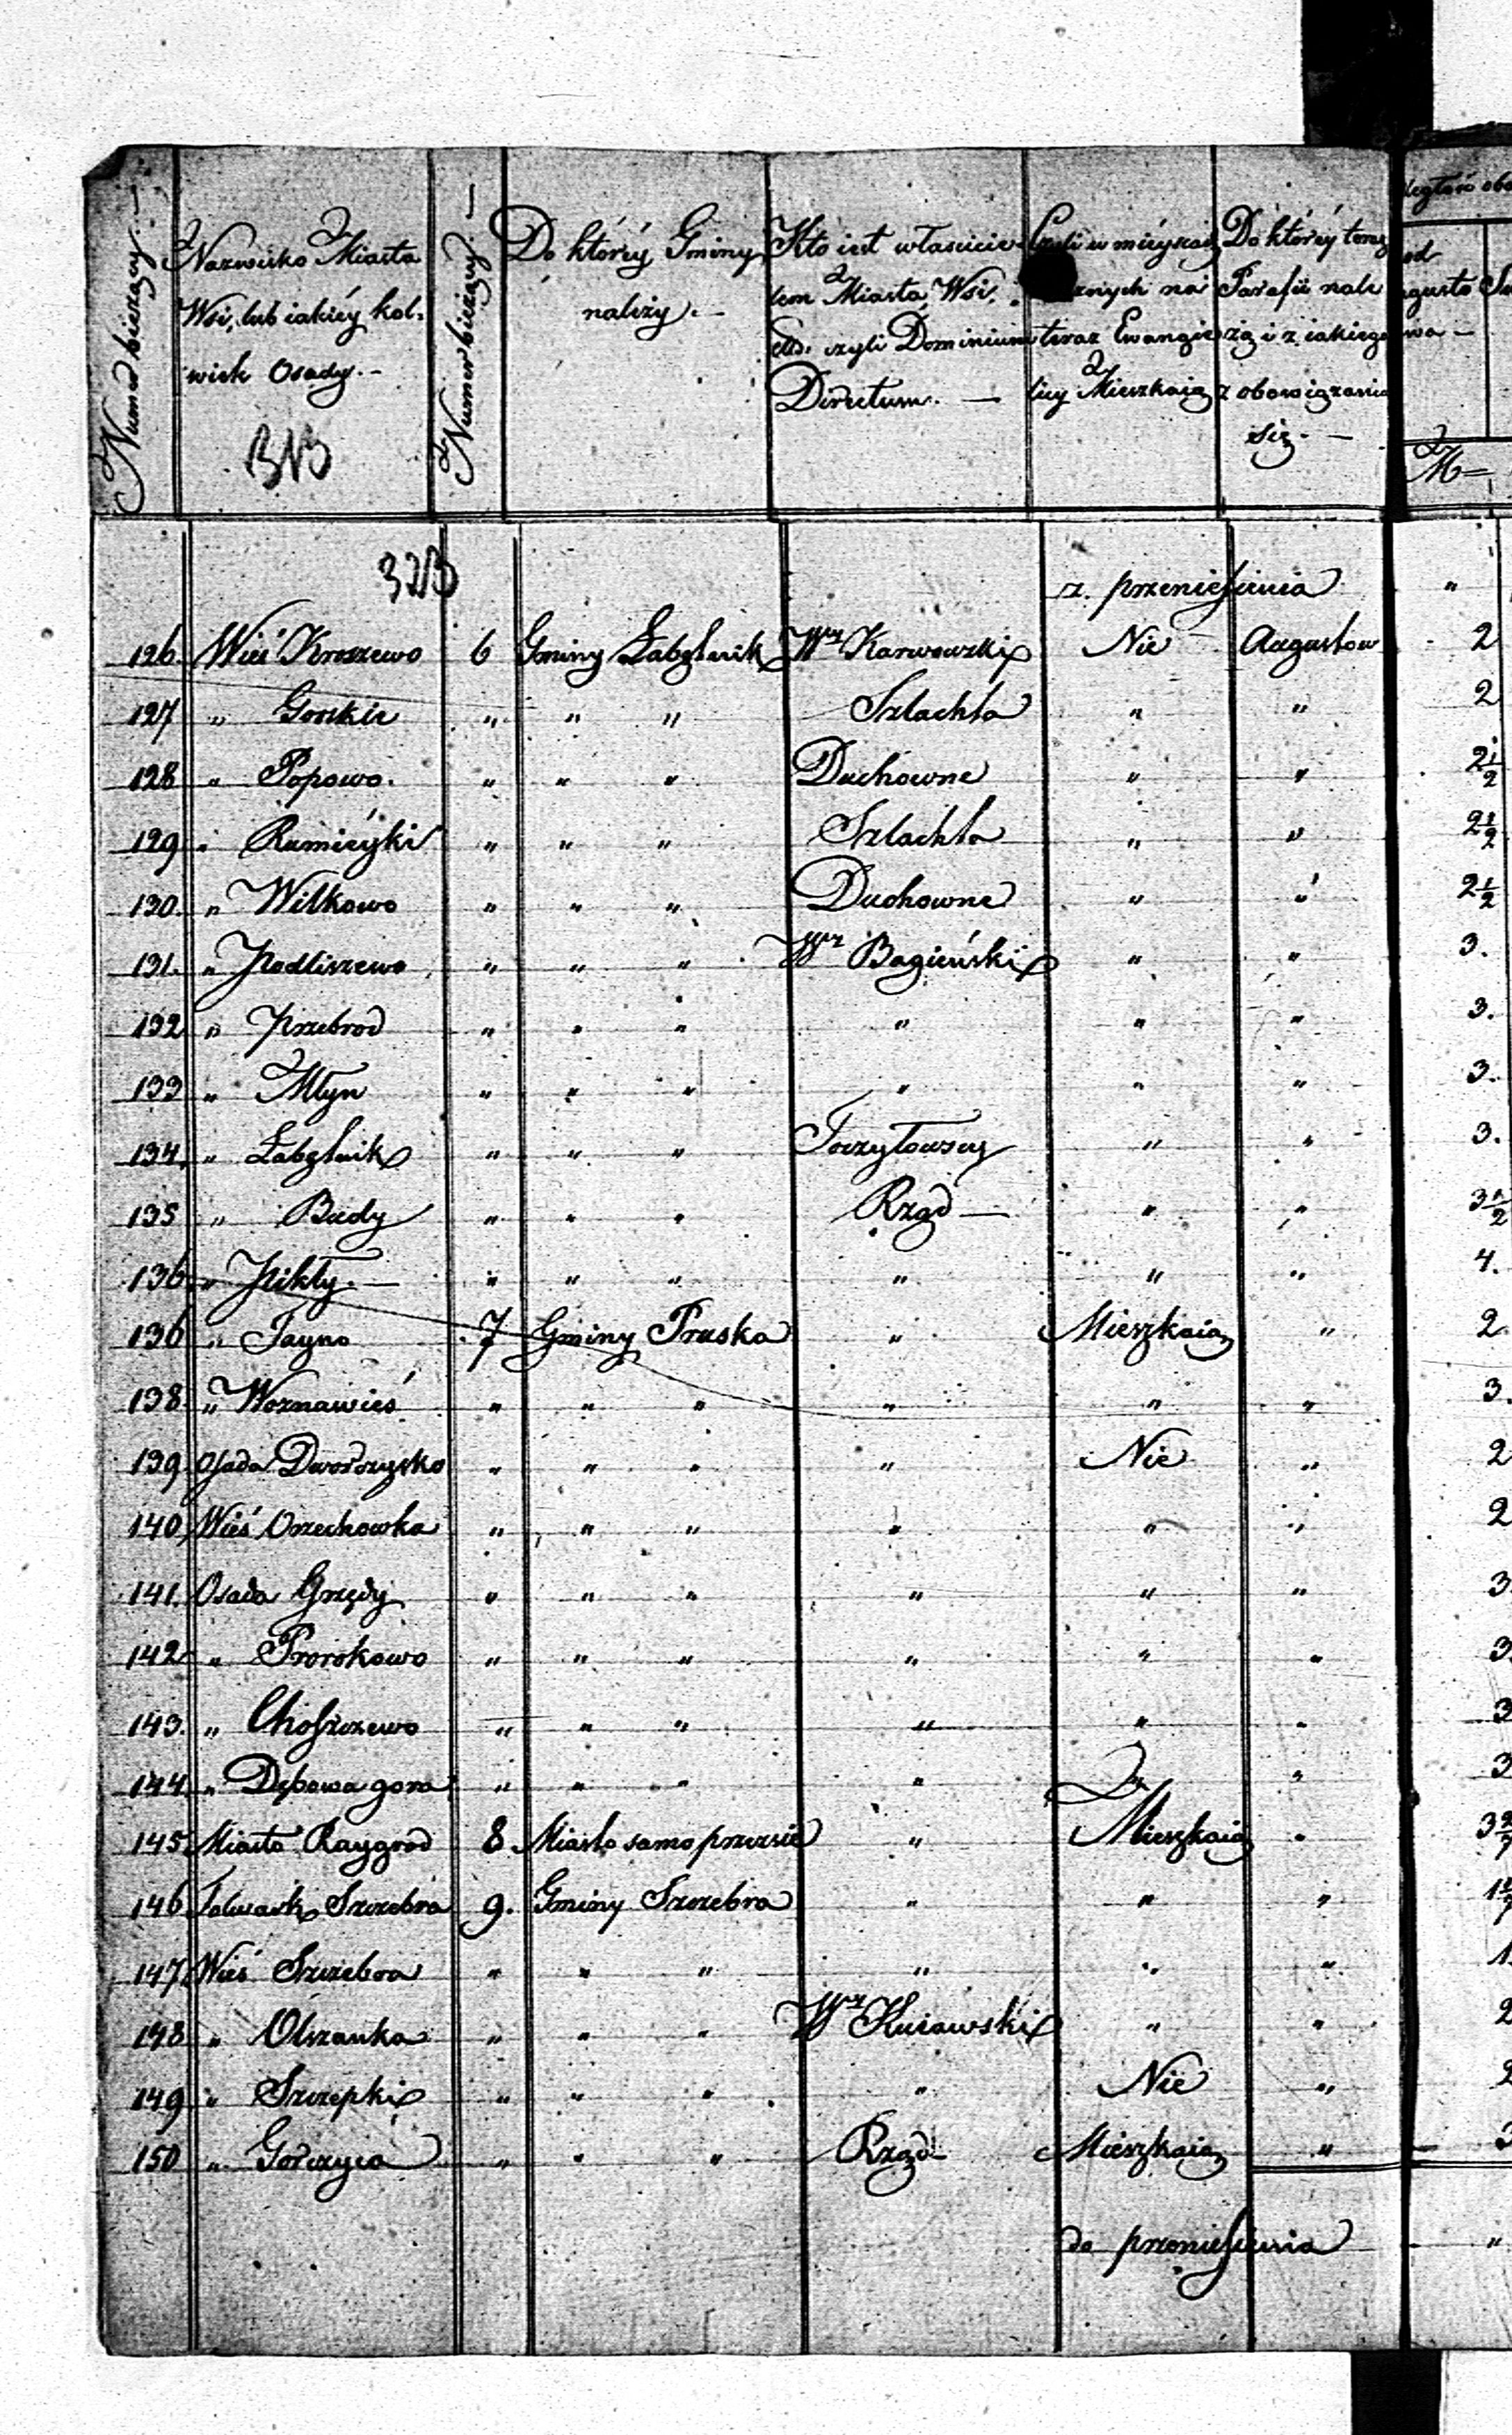 Numer bieżący. —
Nazwisko Miasta
Wsi, lub iakiéy kol=
wiek Osady. -
Numer bieżący. —
Do któréy Gminy
należy. -
Kto iest właścicie-
lem Miasta, Wsi,
czyli Dominium
Directum. —
Czyli w mieyscach
nych na
teraz Ewangie
licy Mieszkaią
Do któréy teraz
Parafii nale
żą i z iakiego
z obowiązania
się. —
od
gusto
wa —
M=
323
z przeniesienia "
126 Wieś Kroszewo 6 Gminy Łabętnik Wz Karwowski Nie Augustow 2
127 " Gorskie " " " Szlachta " " 2
128 " Popowo. " " " Duchowne " " 2½
129 " Rumieyki " " " Szlachta " " 2½
130. " Wilkowo " " " Duchowne " " 2½
131. " Podliszewo " " " Wz Bagieński " " 3.
132 " Przebrod " " " " " " 3.
133 " Młyn " " " " " " 3.
134. " Łabętnik " " " Toczyłowscy " " 3.
135 " Budy " " " Rząd — " " 3½
136 " Pikły. — " " " " " " 4.
136 " Tayno 7 Gminy Pruska " Mieszkaią " 2
138. " Woznawieś " " " " " " 3.
139. Osada Dworczysko " " " " Nie " 2
140. Wieś Orzechowka " " " " " " 2
141. Osada Grzędy " " " " " " 3
142 " Prorokowo " " " " " " 3
143. " Choszczewo " " " " " " 3
144. " Dębowa gora " " " " " " 3
145 Miasto Raygrod 8 Miasto samo przez sie " Mieszkaią "
146 Folwark Szczebra 9. Gminy Szczebra " " "
147. Wieś Szczebra " " " " " " 1
148 " Olszanka " " " Wz Kuiawski " " 2
149 " Szczepki " " " " Nie " 2
150 " Gorczyca " " " Rząd Mieszkaią " 3
do przeniesienia "